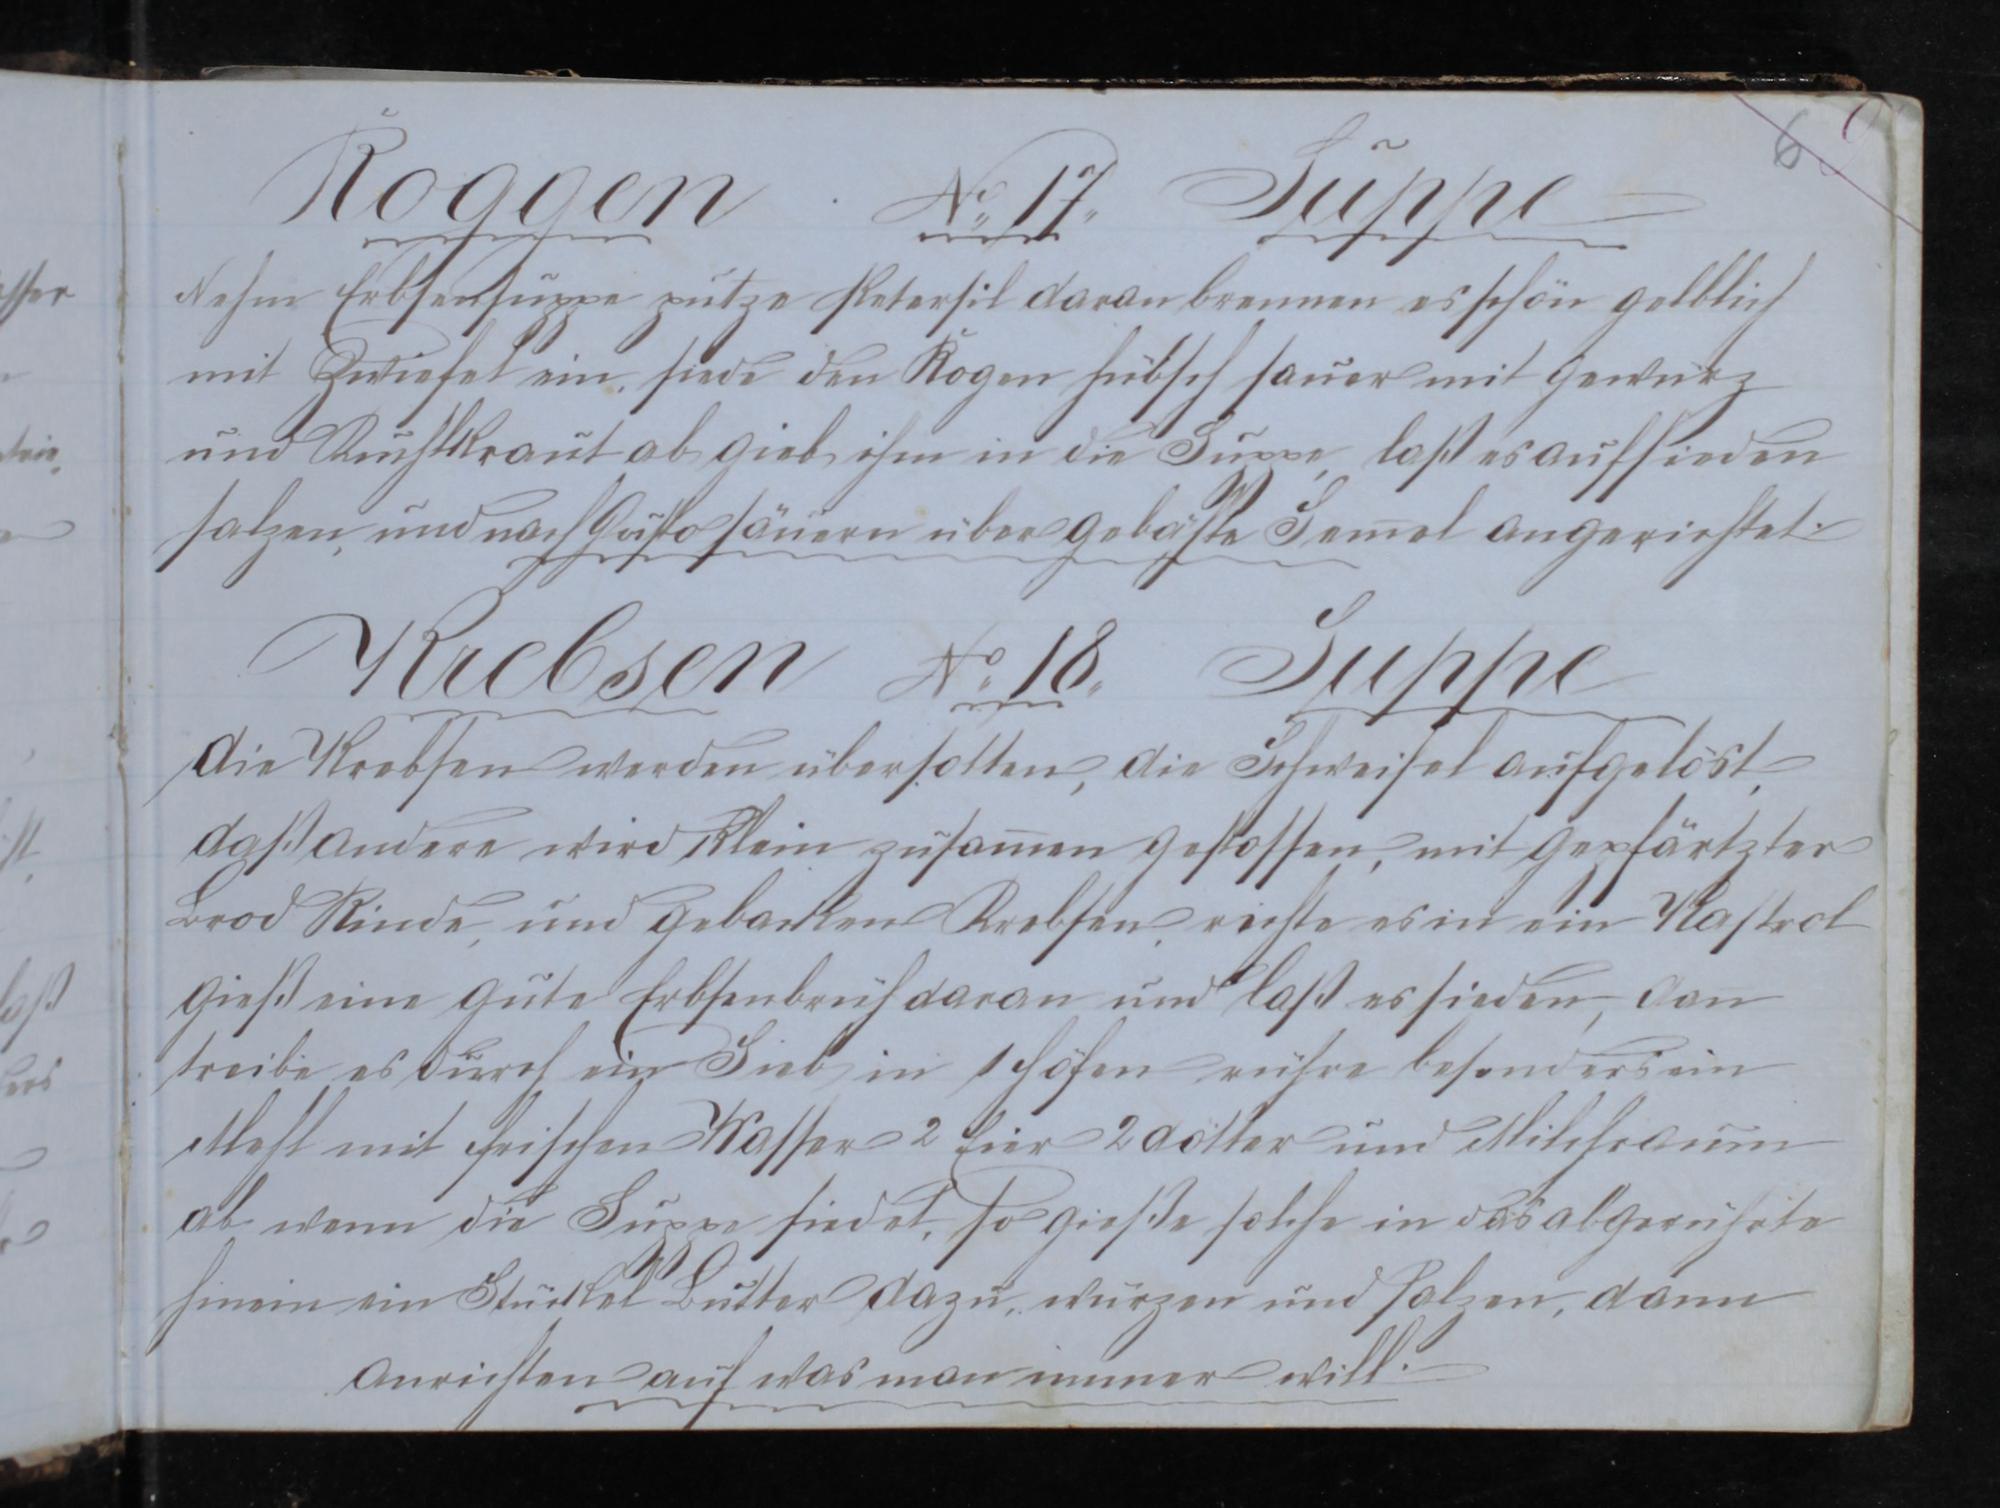 6
Roggen No. 17. Suppe
Nehm Erbsensuppe putze Petersil daran brennen es schön gelblich
mit Zwiefel ein, siede den Rogen hübsch sauer mit Gewürz
und Kuchlkraut ab gieb ihm in die Suppe, laß es aufsieden
salzen, und nach Gusto säuern über gebähte Semel angerichtet.
Krebsen No. 18. Suppe
die Krebsen werden übersotten, die Schweifel aufgelöst,
daß andere wird klein zusamen gestossen, mit
Brod Rinde, und gebacken Krebsen, richte es in ein Kastrol
gieß eine gute Erbsenbrüh daran und laß es sieden, dan
treibe es durch ein Sieb in 1 Höfen rühre besonders ein
Mehl mit frischen Wasser 2 Eier 2 dötter und Milchraum
ab wenn die Suppe siedet, so gieße solche in das abgerührte
hinein ein Stückel Butter dazu, würzen und salzen, dann
anrichten auf was man immer will.